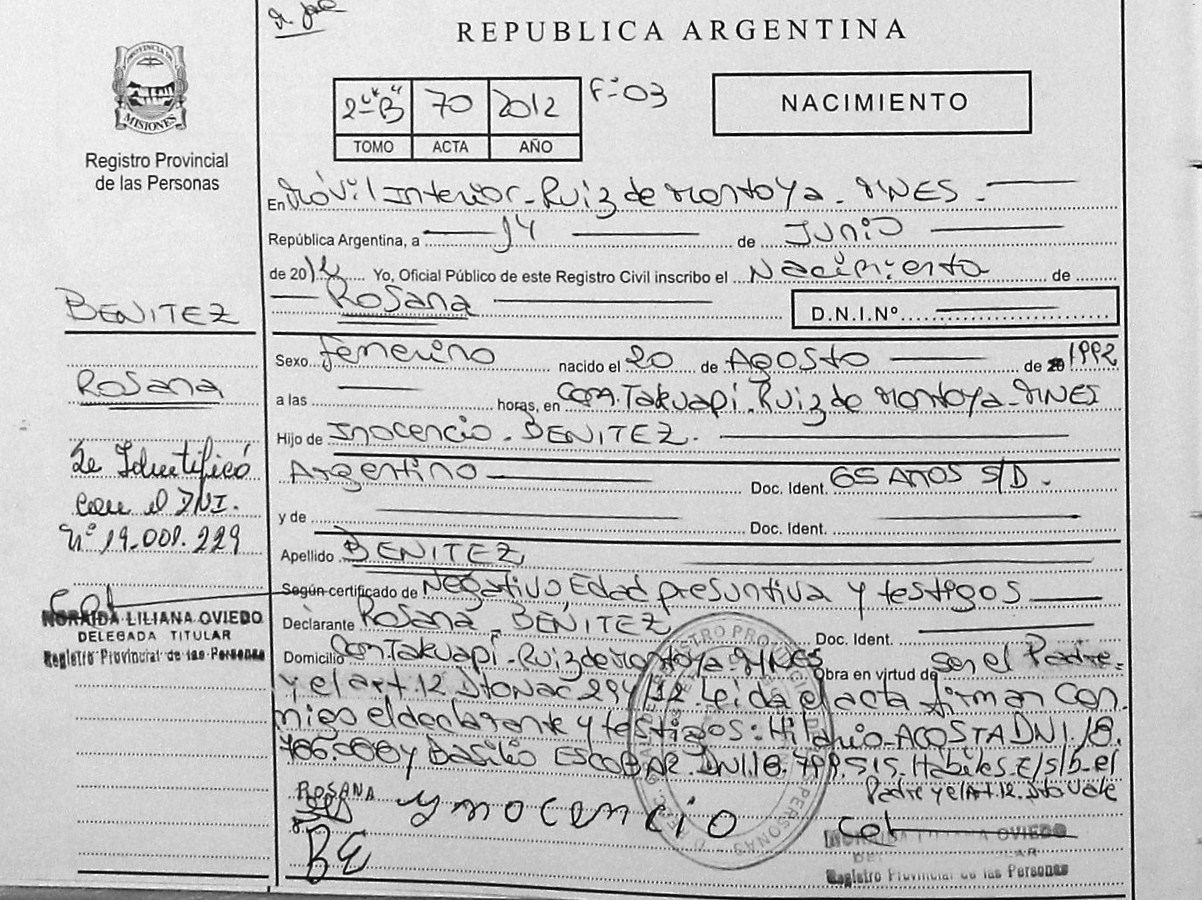 REPUBLICA ARGENTINA
PROVINCIA DE
MISIONES
Registro Provincial
de las Personas
2º "B" 70 2012 F-03
TOMO ACTA AÑO
NACIMIENTO
En Móvil Interior - Ruiz de Montoya - MNES -
República Argentina, a 14 de Junio
de 2012 Yo, Oficial Público de este Registro Civil inscribo el Nacimiento de
Rosana
D.N.I.Nº
Sexo femenino nacido el 20 de Agosto de 1992
a las horas, en Com. Takuapi. Ruiz de Montoya - MNES
Hijo de Inocencio - BENITEZ.
Argentino Doc. Ident. 65 AÑOS S/D.
y de Doc. Ident.
Apellido BENITEZ
Según certificado de Negativo, Edad presuntiva y testigos
Declarante Rosana - BENITEZ Doc. Ident.
Domicilio Com. Takuapi - Ruiz de Montoya - MNES Obra en virtud de Ser el Padre -
y el art. 12 Dto Nac 294/12. Leida el acta firman con
migo el declarante y testigos: Hilario - ACOSTA DNI. 18.
y Basilio ESCOBAR. DNI. 18.799.515. Hábiles. E/s/b - el
Padre y el Art. 12. Dto Vale
ROSANA
BE
ynocencio
BENITEZ
Rosana
Se Identificó
con el DNI.
Nº 19.001.229
NORAIDA LILIANA OVIEDO
DELEGADA TITULAR
Registro Provincial de las Personas
OVIEDO
Registro Provincial de las Personas